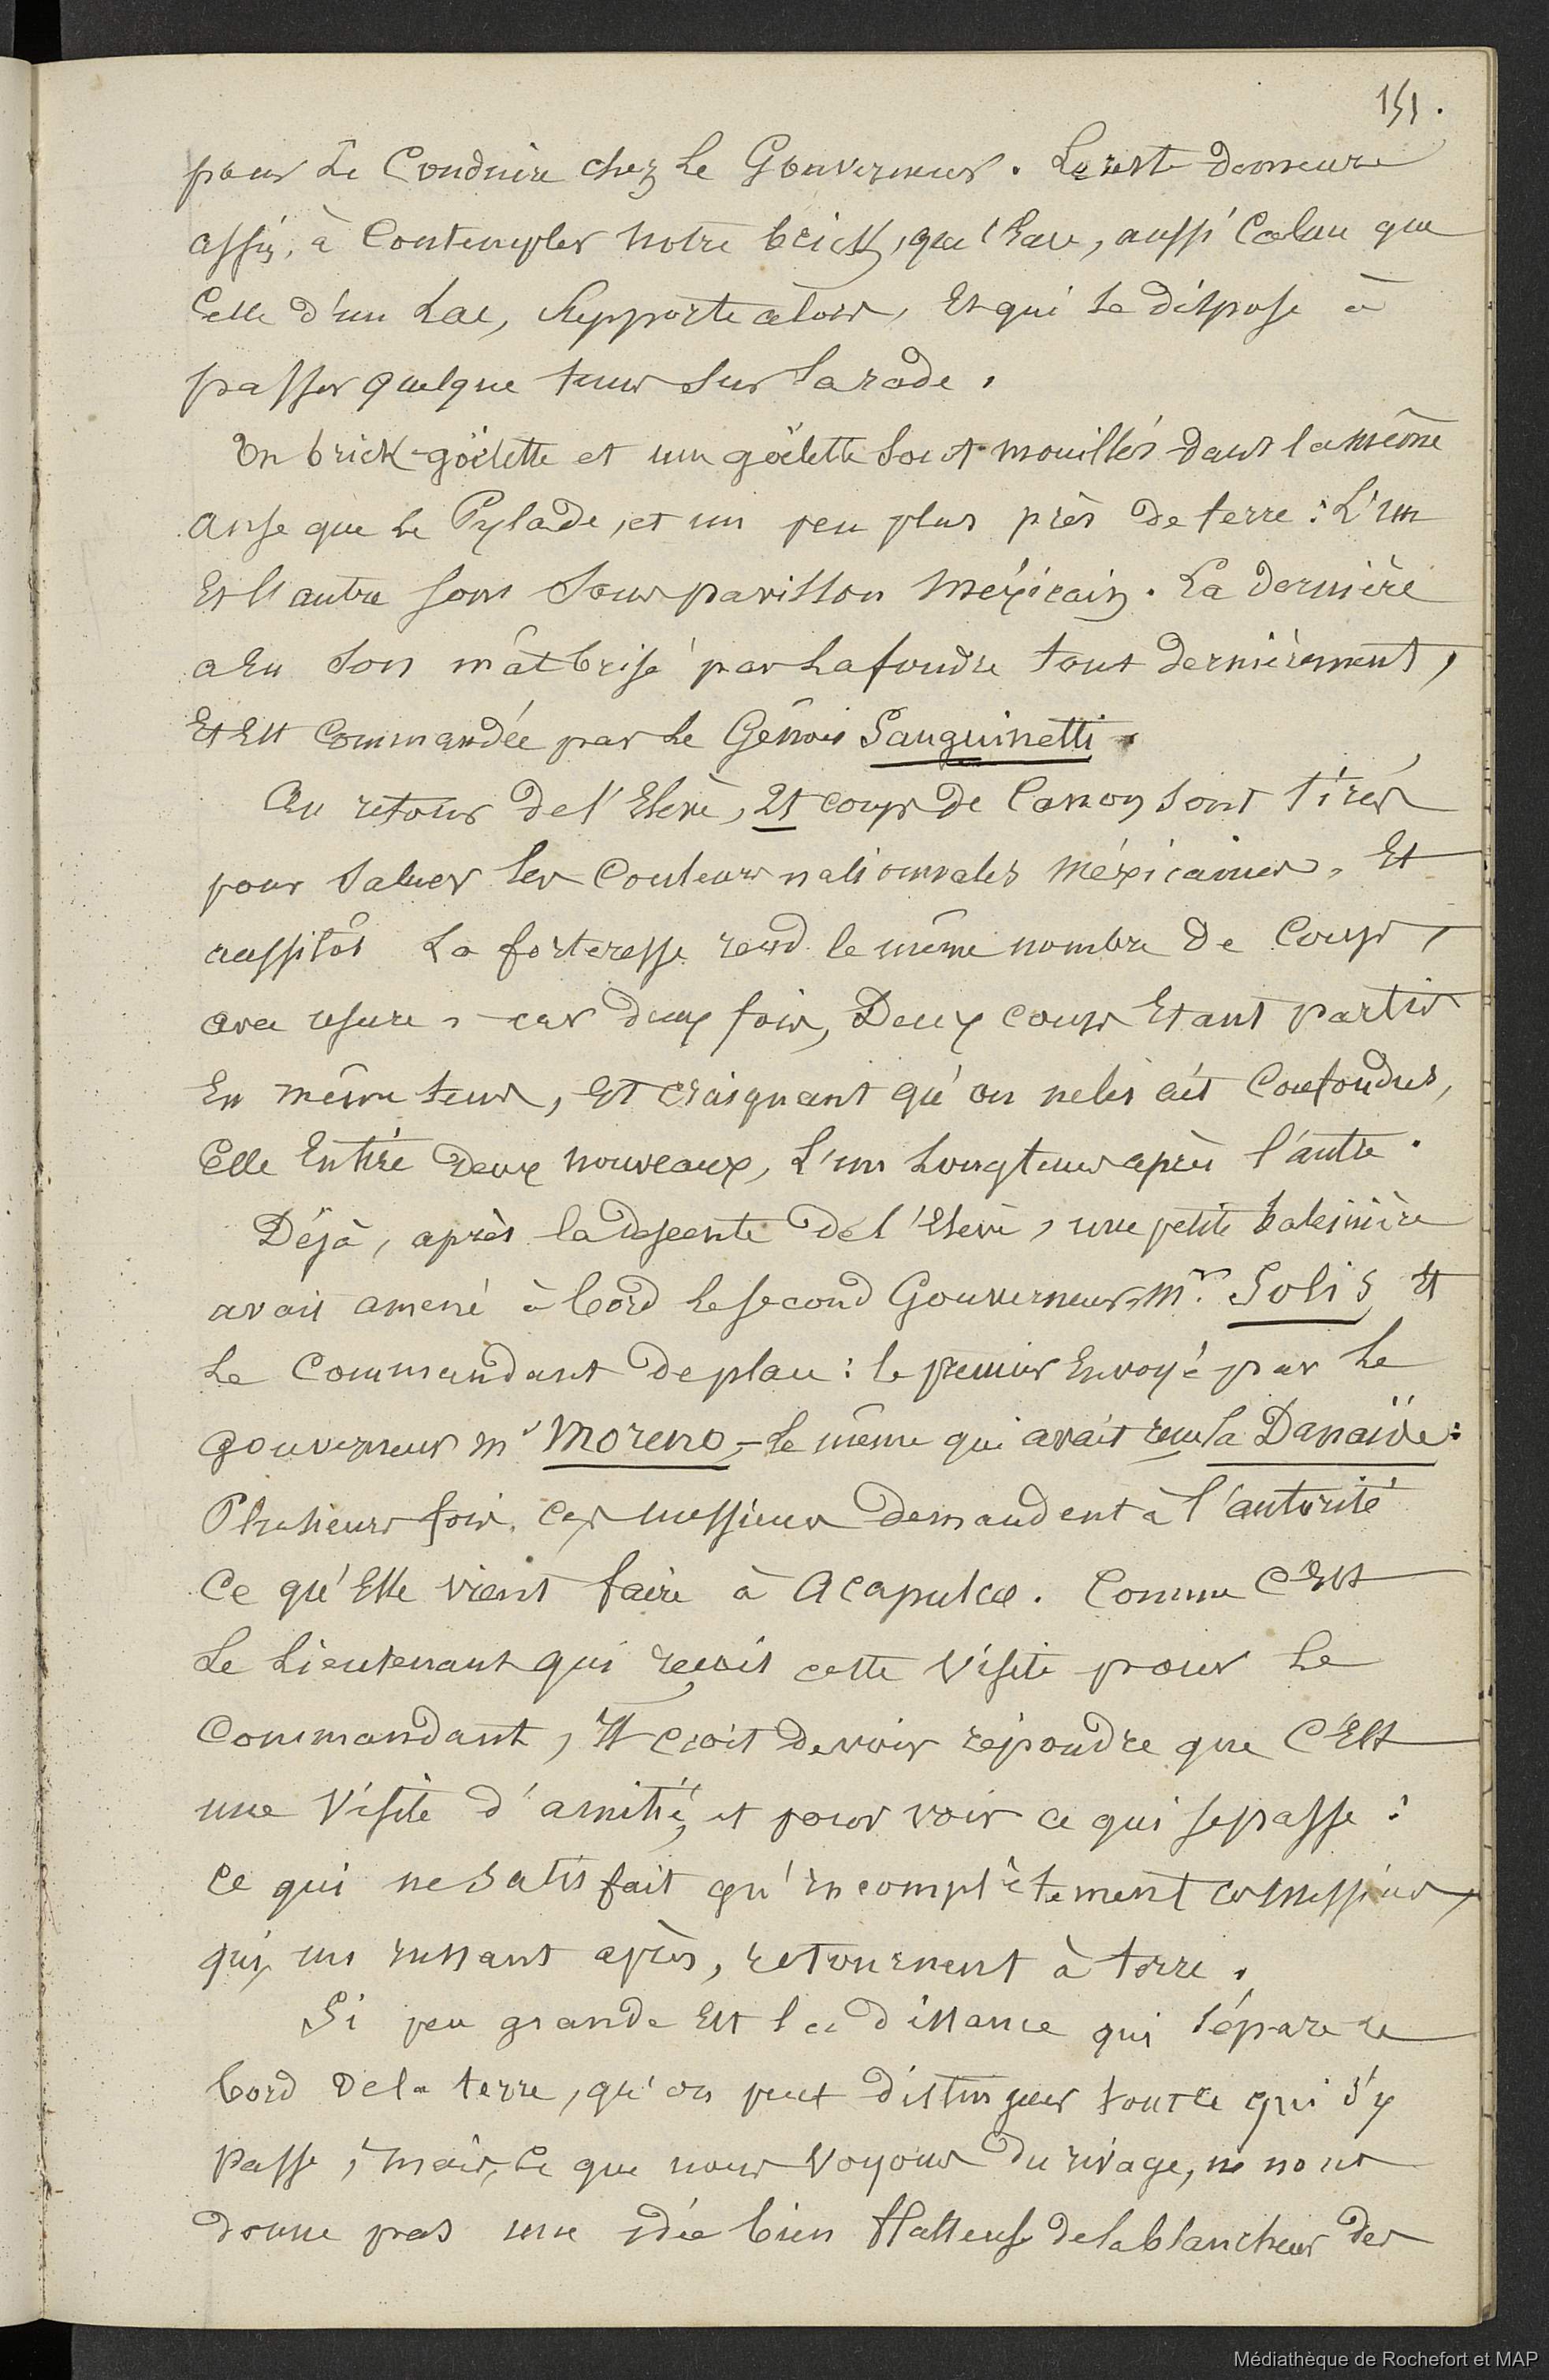 151.
pour le Conduire chez le Gouverneur. Le reste demeure
assis, à Contempler notre brick, que l'Eau, aussi Calme que
Celle d'un Lac, Supporte alors, Et qui se dispose à
passer quelque tems sur la rade.
Un brick-göelette et une göelette sont mouillés dans la même
anse que le Pylade, et un peu plus près de terre : L'un
Et l'autre sont sous pavillon Méxicain. La dernière
a Eu son mât brisé par la foudre tout dernièrement,
Et Est Commandée par le Génois Sanguinetti.
Au retour de l'Elève, 21 coups de Canon sont tirés
pour saluer les Couleurs nationnales méxicaines. Et
aussitôt la forteresse rend le même nombre de Coups,
avec usure, car deux fois, Deux coups Etant partis
En même tems, Et craignant qu'on ne les ait Confondus,
Elle En tire deux nouveaux, L'un Longtems après l'autre.
Déjà, après la descente de l'Elève, une petite baleinière
avait amené à bord le second Gouverneur, Mr. Solis, Et
le Commandant de place : le premier Envoyé par le
gouverneur mr Moreno, - le même qui avait reçu la Danaïde :
Plusieurs fois, Ces messieurs demandent à l'autorité
Ce qu'Elle vient faire à Acapulco. Comme C'Est
le Lieutenant qui reçoit cette visite pour le
Commandant, Il croit devoir répondre que C'Est
une visite d'amitié, et pour voir ce qui se passe :
Ce qui ne satisfait qu'incomplètement ces messieurs,
qui, un instant après, retournent à terre.
Si peu grande Est la distance qui sépare le
bord de la terre, qu'on peut distinguer tout ce qui s'y
passe ; mais, Ce que nous voyons du rivage, ne nous
donne pas une idée bien flatteuse de la blancheur des
Médiathèque de Rochefort et MAP